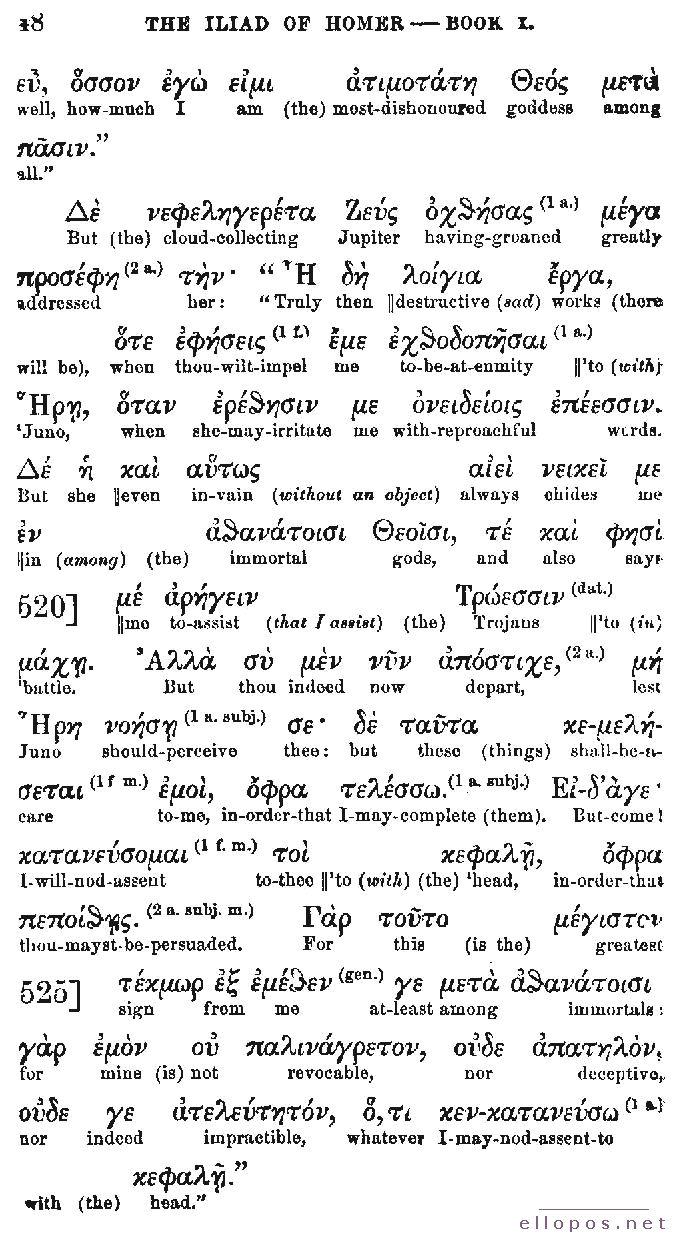 18 THE ILIAD OF HOMER — BOOK I.
εὖ, ὅσσον ἐγὼ εἰμι ἀτιμοτάτη Θεός μετὰ
well, how-much I am (the) most-dishonoured goddess among
πᾶσιν.”
all.”
Δὲ νεφεληγερέτα Ζεύς ὀχθήσας (1 a.) μέγα
But (the) cloud-collecting Jupiter having-groaned greatly
προσέφη (2 a.) τὴν· “ Ἦ δὴ λοίγια ἔργα,
addressed her: “Truly then ‖destructive (sad) works (there
ὅτε ἐφήσεις (1 f.) ἔμε ἐχθοδοπῆσαι (1 a.)
will be), when thou-wilt-impel me to-be-at-enmity ‖'to (with)
Ἥρη, ὅταν ἐρέθησιν με ὀνειδείοις ἐπέεσσιν.
'Juno, when she-may-irritate me with-reproachful words.
Δέ ἡ καὶ αὔτως αἰεὶ νεικεῖ με
But she ‖even in-vain (without an object) always chides me
ἐν ἀθανάτοισι Θεοῖσι, τέ καὶ φησὶ
‖in (among) (the) immortal gods, and also says
520] μέ ἀρήγειν Τρώεσσιν (dat.)
‖me to-assist (that I assist) (the) Trojans ‖'to (in)
μάχῃ. Ἀλλὰ σὺ μὲν νῦν ἀπόστιχε, (2 a.) μή
'battle. But thou indeed now depart, lest
Ἥρη νοήσῃ (1 a. subj.) σε· δὲ ταῦτα κε-μελή-
Juno should-perceive thee: but these (things) shall-be-a-
σεται (1 f m.) ἐμοὶ, ὄφρα τελέσσω. (1 a. subj.) Εἰ-δ’ἀγε·
care to-me, in-order-that I-may-complete (them). But-come!
κατανεύσομαι (1 f. m.) τοὶ κεφαλῇ, ὄφρα
I-will-nod-assent to-thee ‖'to (with) (the) 'head, in-order-that
πεποίθῃς. (2 a. subj. m.) Γὰρ τοῦτο μέγιστον
thou-mayst-be-persuaded. For this (is the) greatest
525] τέκμωρ ἐξ ἐμέθεν (gen.) γε μετὰ ἀθανάτοισι
sign from me at-least among immortals:
γὰρ ἐμὸν οὐ παλινάγρετον, οὐδε ἀπατηλὸν,
for mine (is) not revocable, nor deceptive,
οὐδε γε ἀτελεύτητόν, ὅ,τι κεν-κατανεύσω (1 a)
nor indeed impractible, whatever I-may-nod-assent-to
κεφαλῇ.”
with (the) head.”
ellopos.net